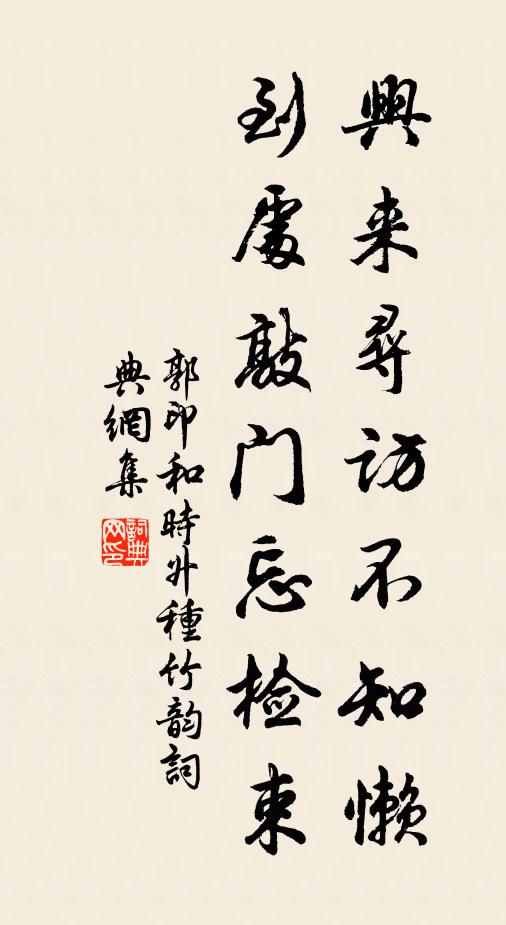 興来尋訪不知懶
到處敲門忘檢束
郭印和時升種竹韵詞
典網集
詞典網印